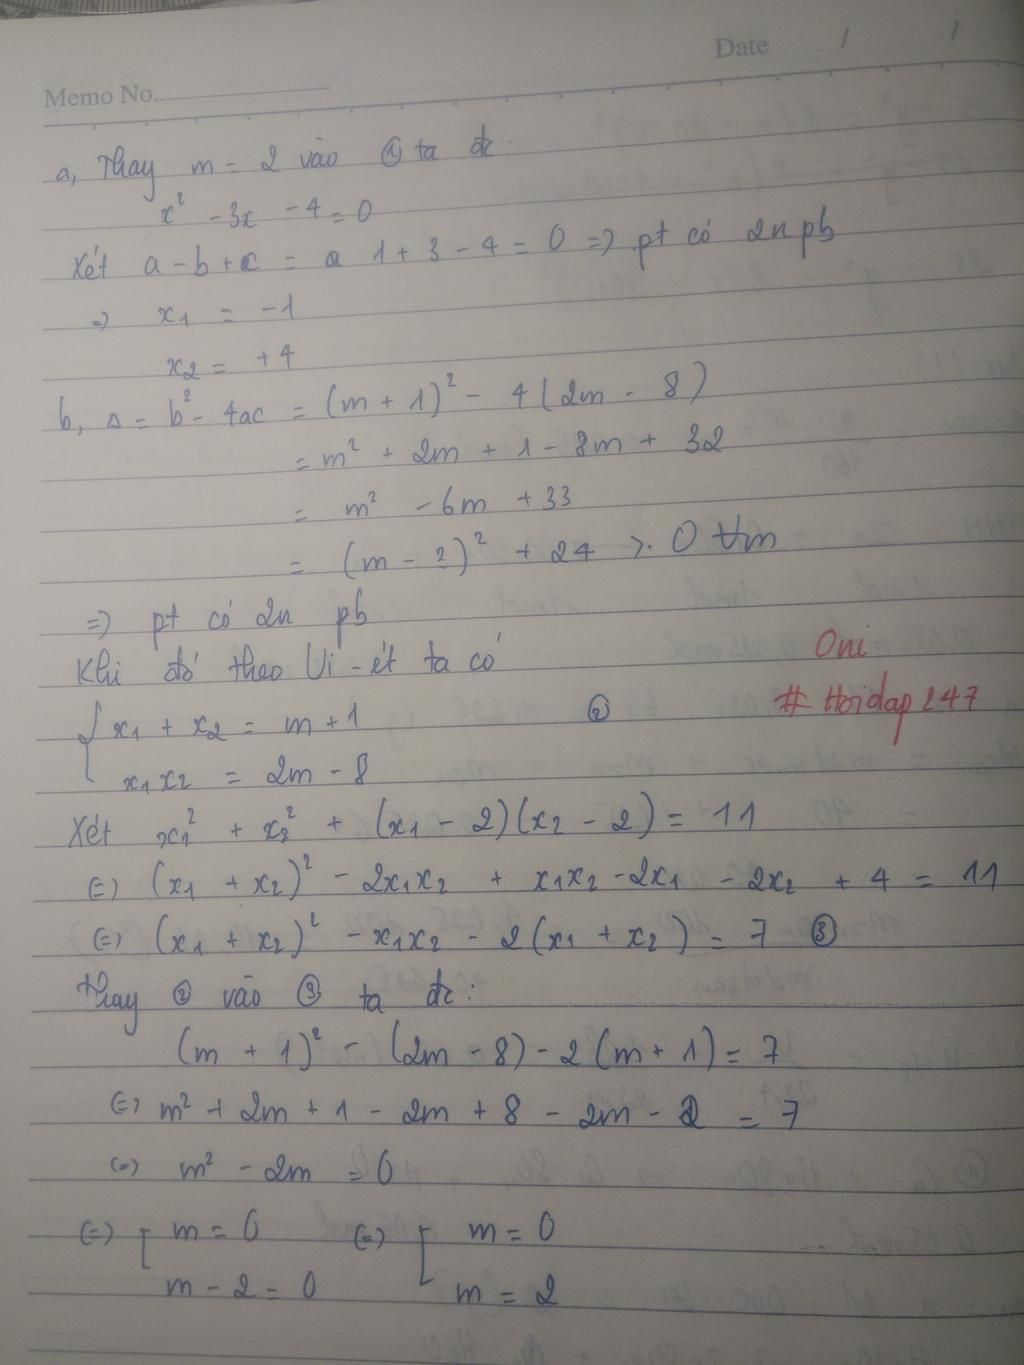 Date / /
Memo No.
a, Thay m = 2 vào ① ta đc
x² - 3x - 4 = 0
Xét a - b + c = 1 + 3 - 4 = 0 => pt có 2n pb
=> x1 = -1
x2 = +4
b, Δ = b² - 4ac = (m + 1)² - 4(2m - 8)
= m² + 2m + 1 - 8m + 32
= m² - 6m + 33
= (m - )² + 24 > 0 ∀m
=> pt có 2n pb
Khi đó theo Vi-ét ta có
Oni
# Hoidap247
{ x1 + x2 = m + 1 ②
x1x2 = 2m - 8
Xét x1² + x2² + (x1 - 2)(x2 - 2) = 11
(=) (x1 + x2)² - 2x1x2 + x1x2 - 2x1 - 2x2 + 4 = 11
(=) (x1 + x2)² - x1x2 - 2(x1 + x2) = 7 ③
Thay ② vào ③ ta đc:
(m + 1)² - (2m - 8) - 2(m + 1) = 7
(=) m² + 2m + 1 - 2m + 8 - 2m - 2 = 7
(=) m² - 2m = 0
(=) [ m = 0 (=) [ m = 0
m - 2 = 0 m = 2